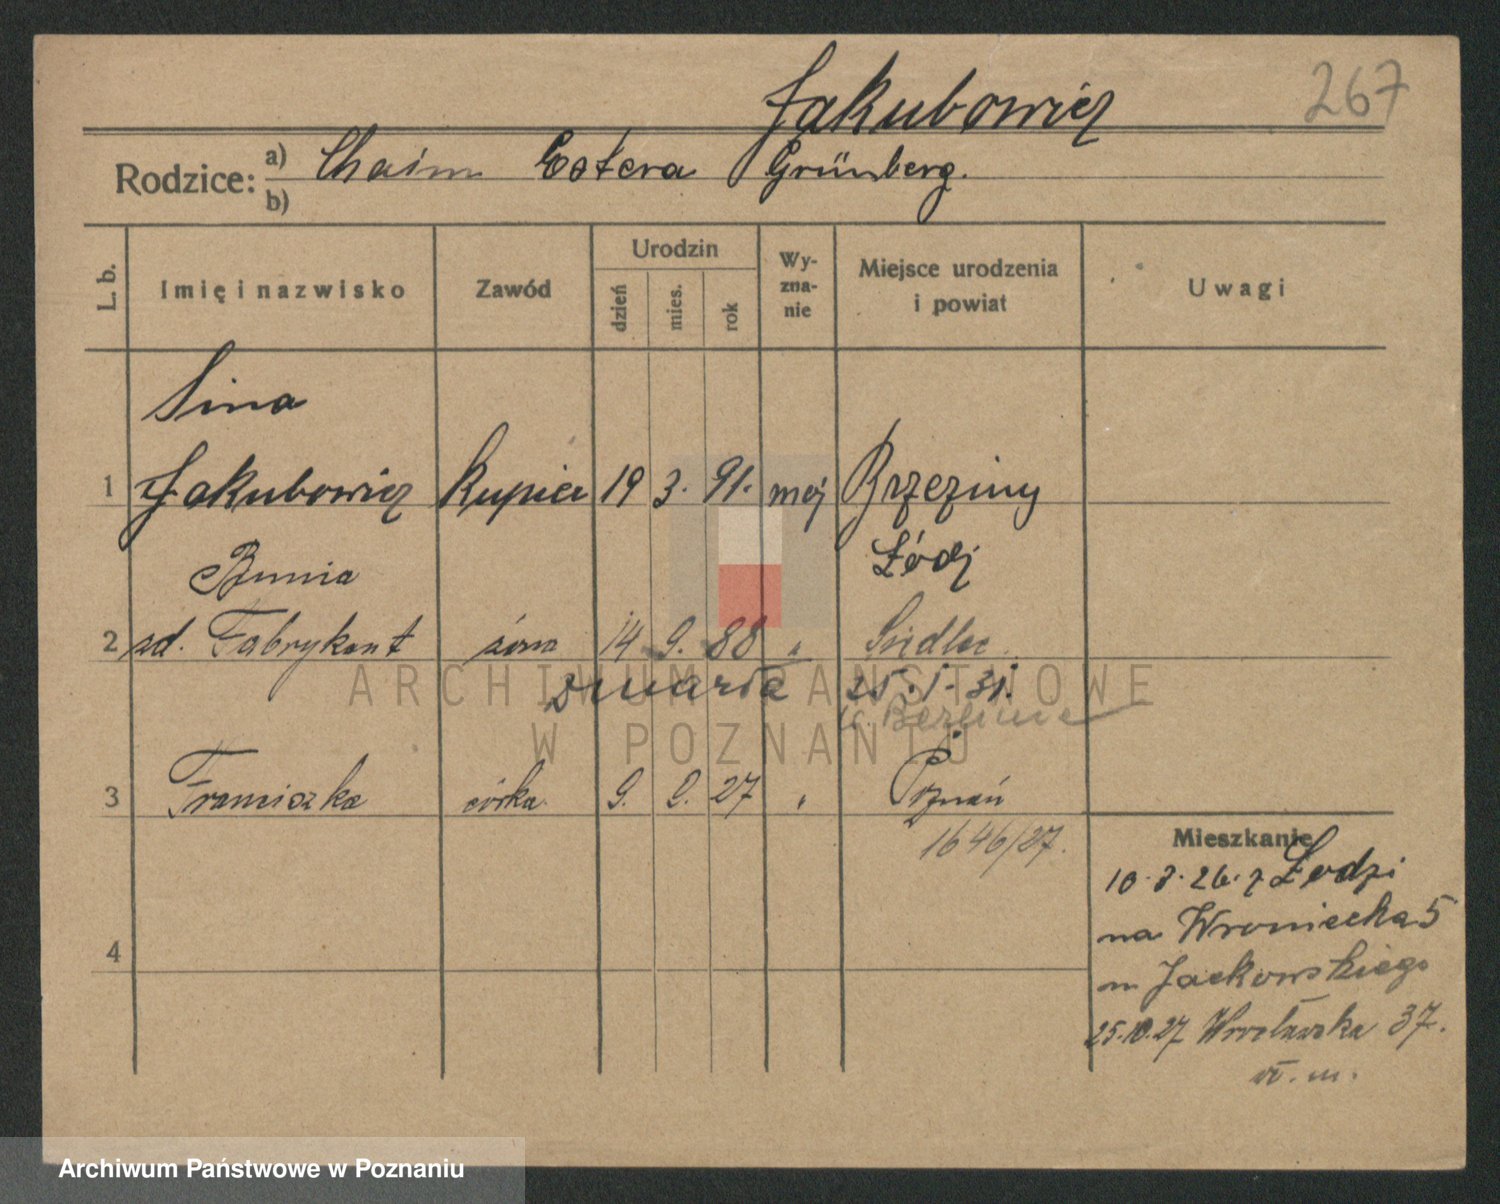 Jakubowicz 267
Rodzice: a) Chaim Estera Grünberg.
b)
L. b. Imię i nazwisko Zawód Urodzin dzień mies. rok Wy-zna-nie Miejsce urodzenia i powiat Uwagi
Sina
1 Jakubowicz Kupiec 19 3. 91. moj Brzeziny
Bunia Łódź
2 zd. Fabrykant żona 14 9. 88 " Siedlec
zmarła 25. 1. 31.
w Berlinie
3 Franciszka córka 9. 9. 27 " Poznań
1646/27.
Mieszkanie
10. 3. 26. z Łodzi
na Wroniecka 5
m Jackowskiego
4
25.10.27 Wrocławska 37.
wł. m.
ARCHIWUM PAŃSTWOWE
W POZNANIU
Archiwum Państwowe w Poznaniu